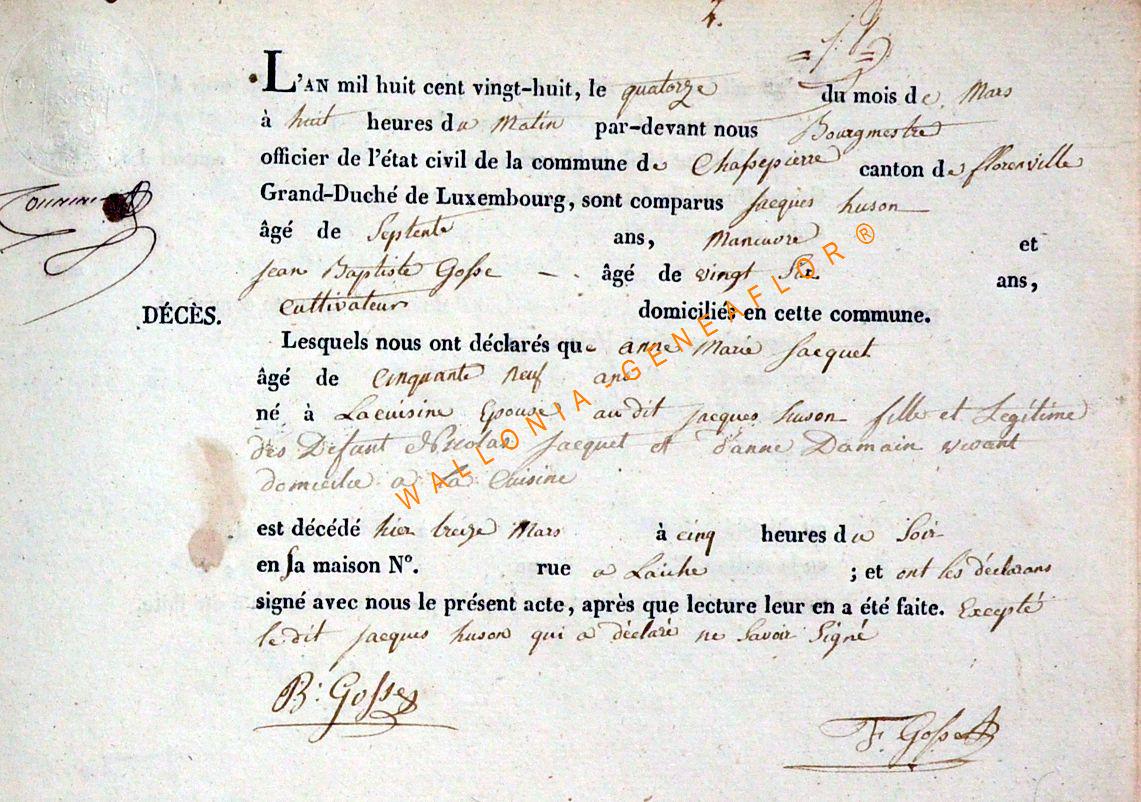 2.
L'AN mil huit cent vingt-huit, le quatorze du mois de Mars
à huit heures du Matin par-devant nous Bourgmestre
officier de l'état civil de la commune de Chassepierre canton de florenville
Grand-Duché de Luxembourg, sont comparus jacques huson
âgé de Septente ans, Maneuvre et
jean Baptiste Gosse âgé de vingt Six ans,
Cultivateur domiciliés en cette commune.
DÉCÈS.
Lesquels nous ont déclarés que anne Marie jacquet
âgé de Cinquante Neuf ans
né à Lacuisine Epouse au dit jacques huson fille et Legitime
des Defunt Nicolas jacquet et d'anne Damain vivant
domicilie a La Cuisine
est décédé hier treize Mars à cinq heures du Soir
en sa maison N°. rue a Laiche ; et ont les déclarans
signé avec nous le présent acte, après que lecture leur en a été faite. Excepté
le dit jacques huson qui a déclaré ne Savoir Signé
B: Gosse
F. Gosse
WALLONIA-GENEAFLOR ®